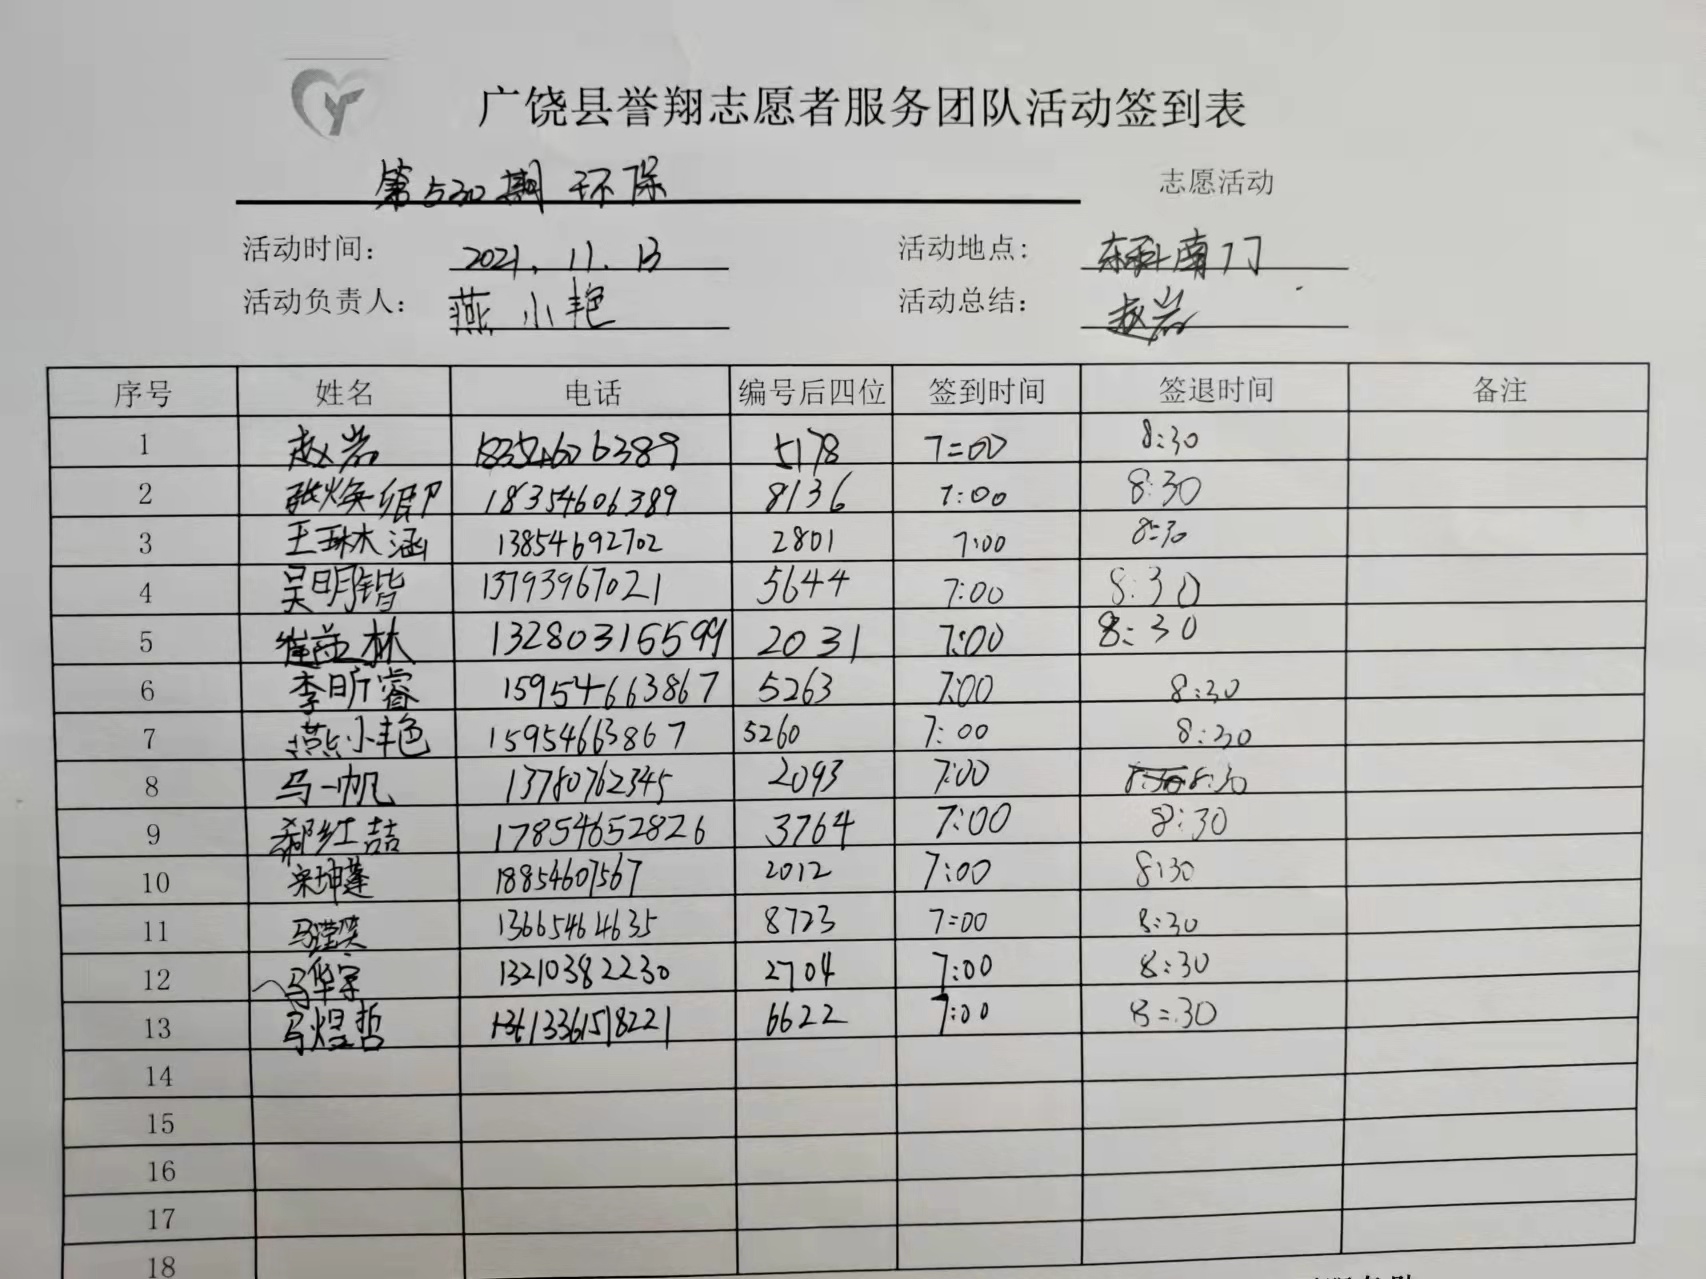 广饶县誉翔志愿者服务团队活动签到表
第530期 环保 志愿活动
活动时间： 2021.11.13 活动地点： 东科南门
活动负责人： 燕小艳 活动总结： 赵岩
序号 姓名 电话 编号后四位 签到时间 签退时间 备注
1 赵岩 18354606389 5178 7:00 8:30
2 张焕 18354606389 8136 7:00 8:30
3 王琳涵 13854692702 2801 7:00 8:30
4 吴明锴 13793967021 5644 7:00 8:30
5 崔益林 13280316599 2031 7:00 8:30
6 李昕睿 15954663867 5263 7:00 8:30
7 燕小艳 15954663867 5260 7:00 8:30
8 马一帆 13780762345 2093 7:00 8:30
9 郝红喆 17854652826 3764 7:00 8:30
10 宋坤蓬 18854607567 2012 7:00 8:30
11 马滢笑 13665464635 8723 7:00 8:30
12 马华宇 13210382230 2704 7:00 8:30
13 马煜哲 6622 7:00 8:30
14
15
16
17
18